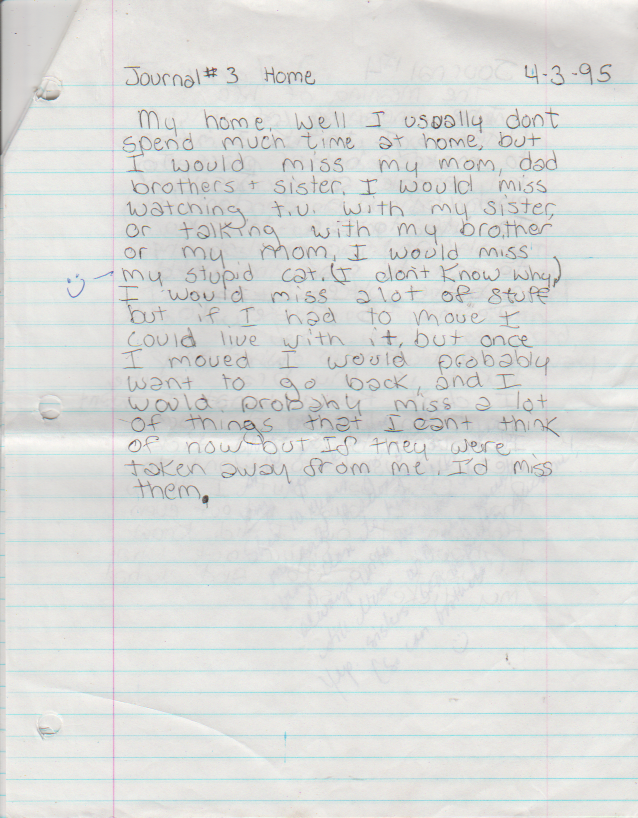 Journal # 3 Home 4-3-95
My home, well I usually dont
spend much time at home, but
I would miss my mom, dad
brothers + sister. I would miss
watching t.v. with my sister,
or talking with my brother
or my mom, I would miss
my stupid cat. (I don't know why)
I would miss alot of stuff
but if I had to move I
could live with it, but once
I moved I would probably
want to go back, and I
would probably miss a lot
of things that I cant think
of now but If they were
taken away from me. I'd miss
them.